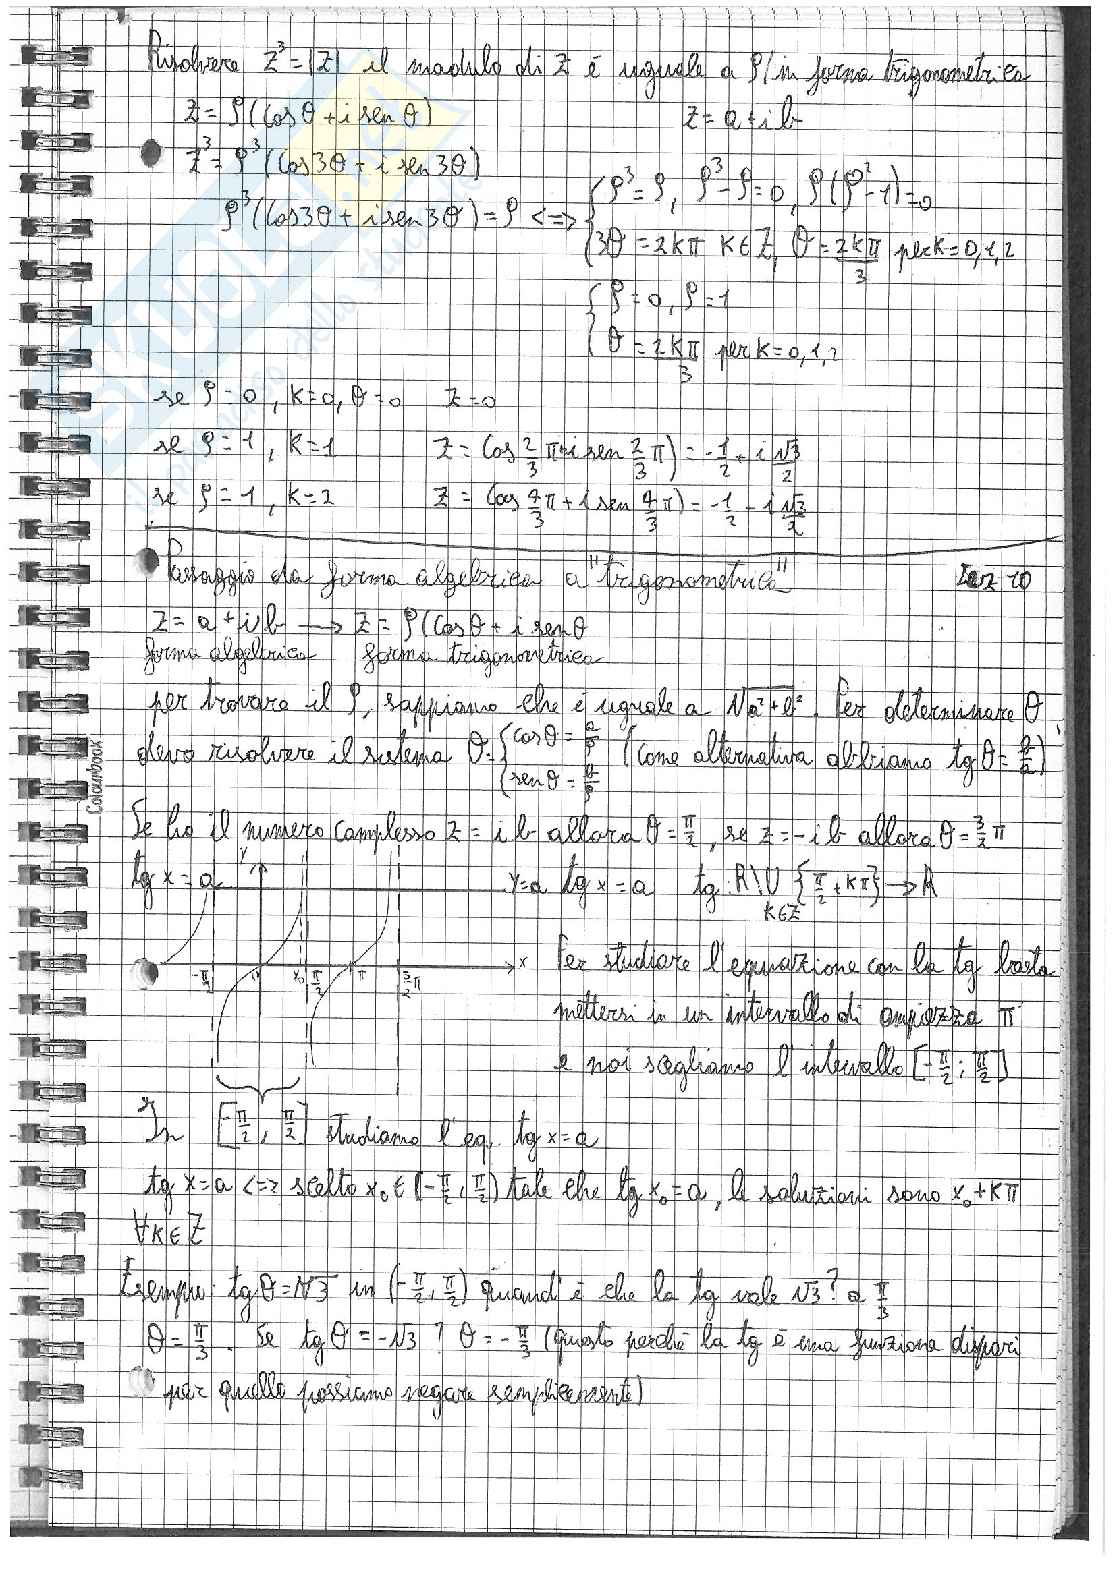 Risolvere z³ = |z| il modulo di z è uguale a ρ / in forma trigonometrica
z = ρ(cosθ + i senθ) z = a + ib
z³ = ρ³(cos3θ + i sen3θ)
ρ³(cos3θ + i sen3θ) = ρ <=> { ρ³ = ρ, ρ³ - ρ = 0, ρ(ρ² - 1) = 0
3θ = 2kπ k∈Z, θ = 2kπ/3 per k = 0,1,2
{ ρ = 0, ρ = 1
θ = 2kπ/3 per k = 0,1,2
se ρ = 0, k = 0, θ = 0 z = 0
se ρ = 1, k = 1 z = cos 2/3 π + i sen 2/3 π) = -1/2 + i √3/2
se ρ = 1, k = 2 z = (cos 4/3 π + i sen 4/3 π) = -1/2 - i √3/2
Passaggio da forma algebrica a "trigonometrica" Lez 10
z = a + ib → z = ρ(cosθ + i senθ
forma algebrica forma trigonometrica
per trovare il ρ, sappiamo che è uguale a √a² + b². Per determinare θ,
devo risolvere il sistema θ = { cosθ = a/ρ senθ = b/ρ (come alternativa abbiamo tgθ = b/a)
Colourbook
Se ho il numero complesso z = ib allora θ = π/2, se z = -ib allora θ = 3/2 π
tg x = a y y = a tg x = a tg: R\U {π/2 + kπ} → R
k∈Z
-π/2 x₀ π/2 π 3/2 π x
Per studiare l'equazione con la tg basta
mettersi in un intervallo di ampiezza π
e noi scegliamo l'intervallo [-π/2; π/2]
In [-π/2, π/2] studiamo l'eq. tg x = a
tg x = a <=> scelto x₀ ∈ (-π/2, π/2) tale che tg x₀ = a, le soluzioni sono x₀ + kπ
∀k∈Z
Esempio: tgθ = √3 in (-π/2, π/2) quand'è che la tg vale √3? a π/3
θ = π/3. Se tgθ = -√3? θ = -π/3 (questo perchè la tg è una funzione dispari
par quello possiamo negare semplicemente)